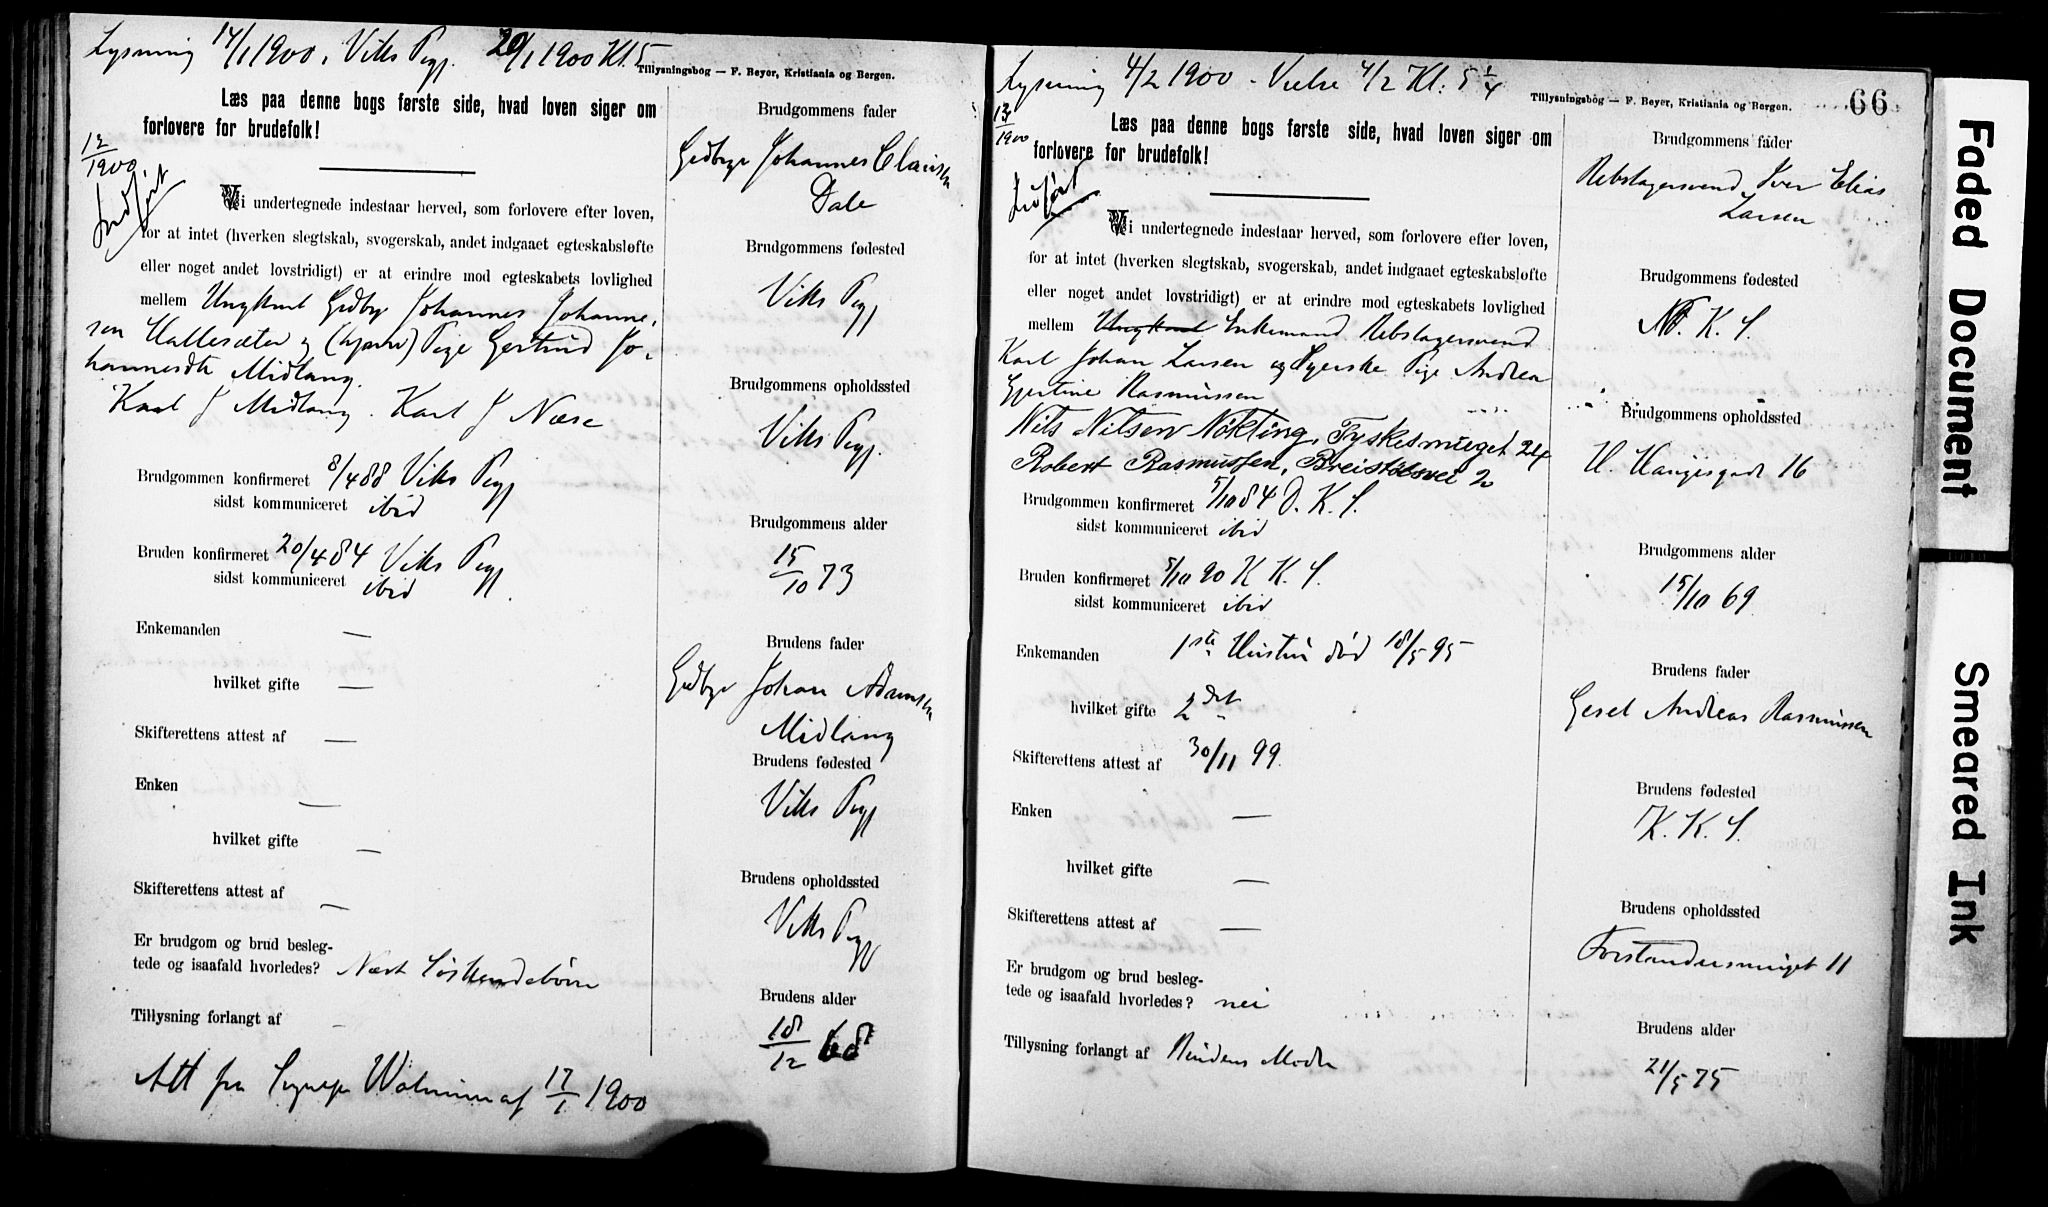 Lysning 14/1 1900, Viks Pgj. 20/1 1900 Kl 5
Tillysningsbog — F. Beyer, Kristiania og Bergen.
Læs paa denne bogs første side, hvad loven siger om
forlovere for brudefolk!
12/1900
Indført
Vi undertegnede indestaar herved, som forlovere efter loven,
for at intet (hverken slegtskab, svogerskab, andet indgaaet egteskabsløfte
eller noget andet lovstridigt) er at erindre mod egteskabets lovlighed
mellem Ungkarl Grdbr Johannes Johanne-
sen Hallesæter og (hjem) Pige Gertrud Jo-
hannesdtr Midlang.
Karl J Midlang. Karl J Næse
Brudgommen konfirmeret 8/4 88 Viks Pgj
sidst kommuniceret ibid
Bruden konfirmeret 20/4 84 Viks Pgj
sidst kommuniceret ibid
Enkemanden —
hvilket gifte —
Skifterettens attest af —
Enken —
hvilket gifte —
Skifterettens attest af —
Er brudgom og brud besleg-
tede og isaafald hvorledes? Næst Søskendebørn
Tillysning forlangt af —
Att fra Sogneprs 17/1 1900
Brudgommens fader
Grdbr Johannes Clausen
Dale
Brudgommens fødested
Viks Pgj
Brudgommens opholdssted
Viks Pgj.
Brudgommens alder
15/10 73
Brudens fader
Grdbr Johan Adamsen
Midlang
Brudens fødested
Viks Pgj
Brudens opholdssted
Viks Pgj
Brudens alder
18/12 68
Lysning 4/2 1900 - Vielse 4/2 Kl. 5 1/4
Tillysningsbog — F. Beyer, Kristiania og Bergen.
66
13/1900
Læs paa denne bogs første side, hvad loven siger om
forlovere for brudefolk!
Indført
Vi undertegnede indestaar herved, som forlovere efter loven,
for at intet (hverken slegtskab, svogerskab, andet indgaaet egteskabsløfte
eller noget andet lovstridigt) er at erindre mod egteskabets lovlighed
mellem Ungkarl Enkemand Rebslagersvend
Karl Johan Larsen og Syerske Pige Andrea
Gjertine Rasmussen
Nils Nilsen Nökling, Tyskesmuget 24
Robert Rasmussen, Breistølsvei 2
Brudgommen konfirmeret 5/10 84 D. K. S.
sidst kommuniceret ibid
Bruden konfirmeret 5/10 90 K K. S.
sidst kommuniceret ibid
Enkemanden 1ste Hustru død 18/5 95
hvilket gifte 2det
Skifterettens attest af 30/11 99
Enken —
hvilket gifte —
Skifterettens attest af —
Er brudgom og brud besleg-
tede og isaafald hvorledes? nei
Tillysning forlangt af Brudens Moder
Brudgommens fader
Rebslagersvend Iver Elias
Larsen
Brudgommens fødested
N. K. S.
Brudgommens opholdssted
H. Haugesgade 16
Brudgommens alder
15/10 69
Brudens fader
Gesel Andreas Rasmussen
Brudens fødested
K. K. S.
Brudens opholdssted
Forstandersmuget 11
Brudens alder
21/5 75
Faded Document
Smeared Ink